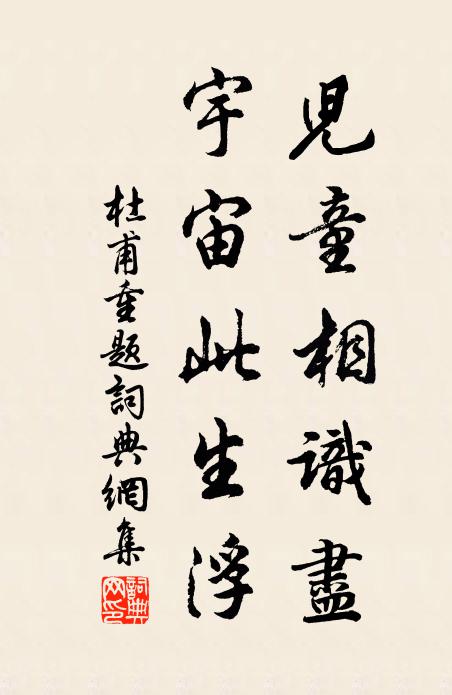 兒童相識盡
宇宙此生浮
杜甫重題詞典網集
詞典網印